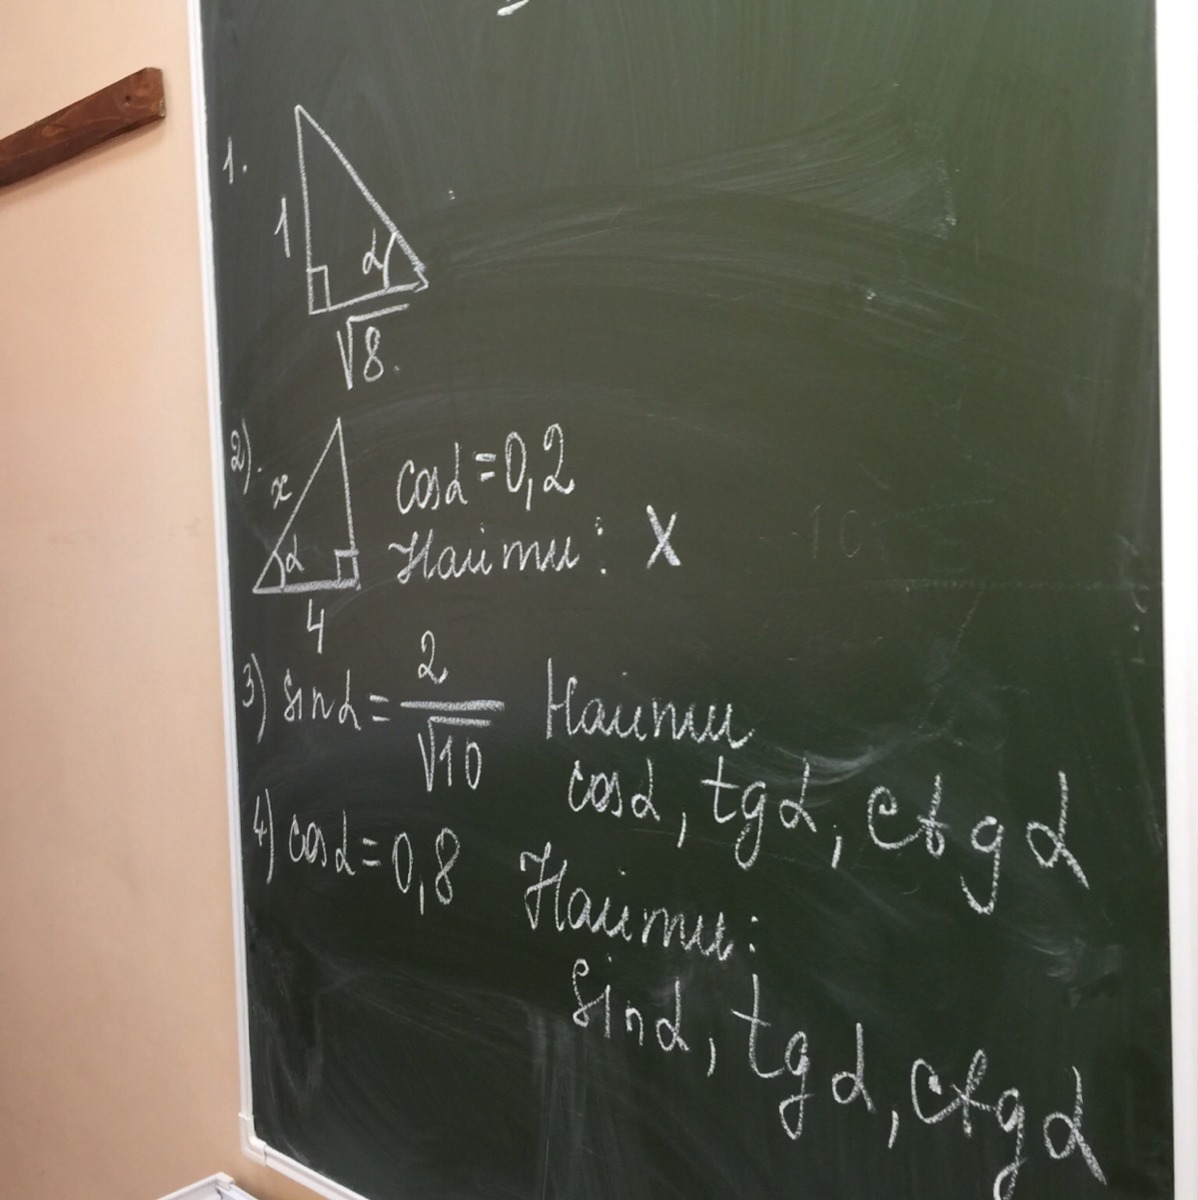 1.
1
α
√8.
2)
x
α
4
cosα=0,2
Найти: X
3) sinα= 2/√10 Найти
cosα, tgα, ctgα
4) cosα=0,8 Найти:
sinα, tgα, ctgα